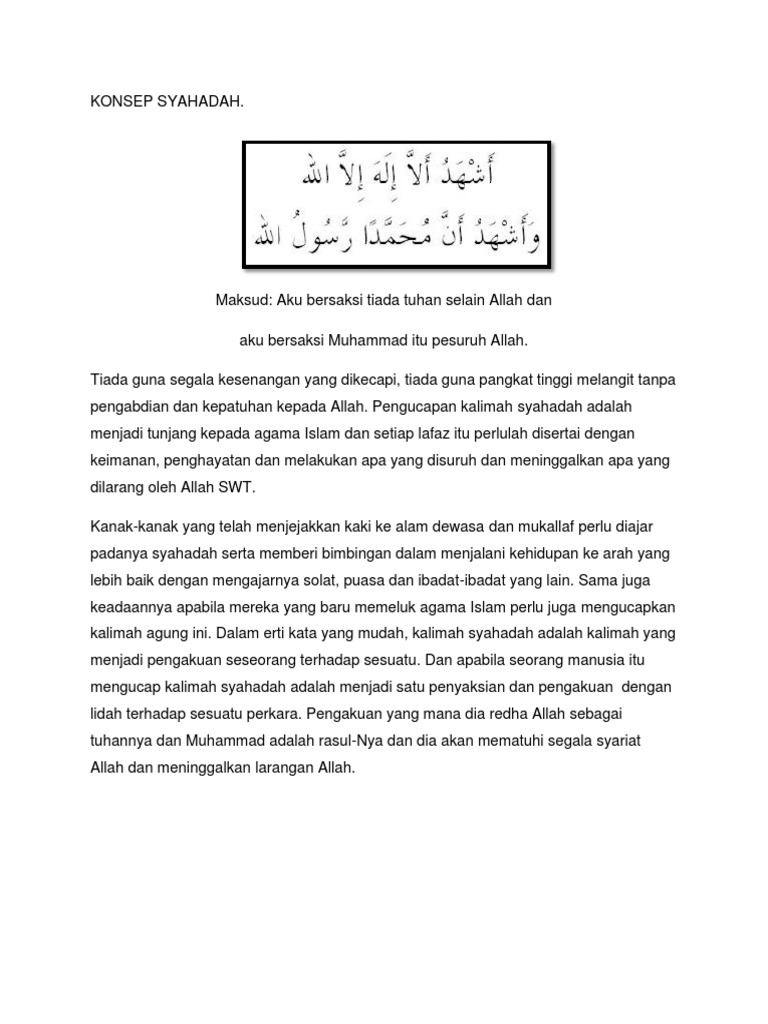 KONSEP SYAHADAH.
أَشْهَدُ أَلاَّ إِلَهَ إِلاَّ الله
وَأَشْهَدُ أَنَّ مُحَمَّدًا رَّسُولُ الله
Maksud: Aku bersaksi tiada tuhan selain Allah dan
aku bersaksi Muhammad itu pesuruh Allah.
Tiada guna segala kesenangan yang dikecapi, tiada guna pangkat tinggi melangit tanpa
pengabdian dan kepatuhan kepada Allah. Pengucapan kalimah syahadah adalah
menjadi tunjang kepada agama Islam dan setiap lafaz itu perlulah disertai dengan
keimanan, penghayatan dan melakukan apa yang disuruh dan meninggalkan apa yang
dilarang oleh Allah SWT.
Kanak-kanak yang telah menjejakkan kaki ke alam dewasa dan mukallaf perlu diajar
padanya syahadah serta memberi bimbingan dalam menjalani kehidupan ke arah yang
lebih baik dengan mengajarnya solat, puasa dan ibadat-ibadat yang lain. Sama juga
keadaannya apabila mereka yang baru memeluk agama Islam perlu juga mengucapkan
kalimah agung ini. Dalam erti kata yang mudah, kalimah syahadah adalah kalimah yang
menjadi pengakuan seseorang terhadap sesuatu. Dan apabila seorang manusia itu
mengucap kalimah syahadah adalah menjadi satu penyaksian dan pengakuan  dengan
lidah terhadap sesuatu perkara. Pengakuan yang mana dia redha Allah sebagai
tuhannya dan Muhammad adalah rasul-Nya dan dia akan mematuhi segala syariat
Allah dan meninggalkan larangan Allah.